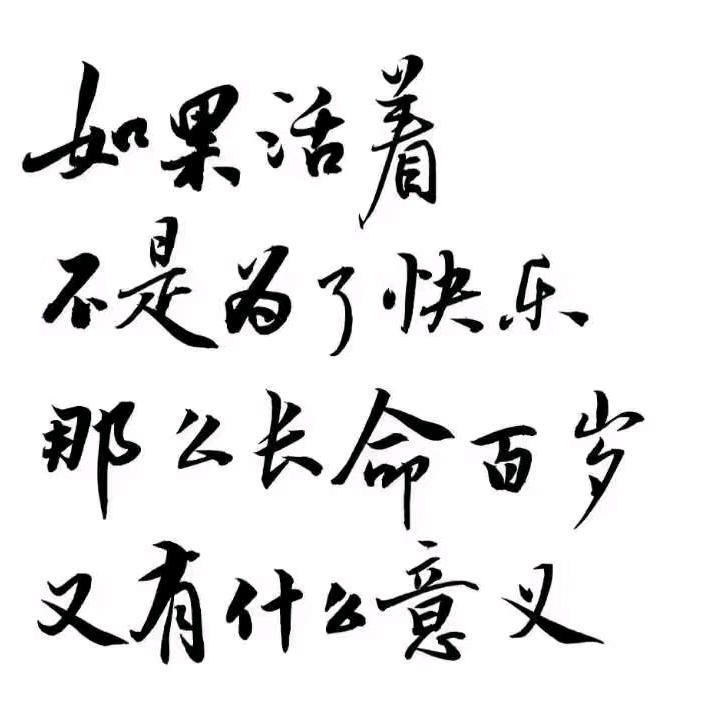 如果活着
不是为了快乐
那么长命百岁
又有什么意义